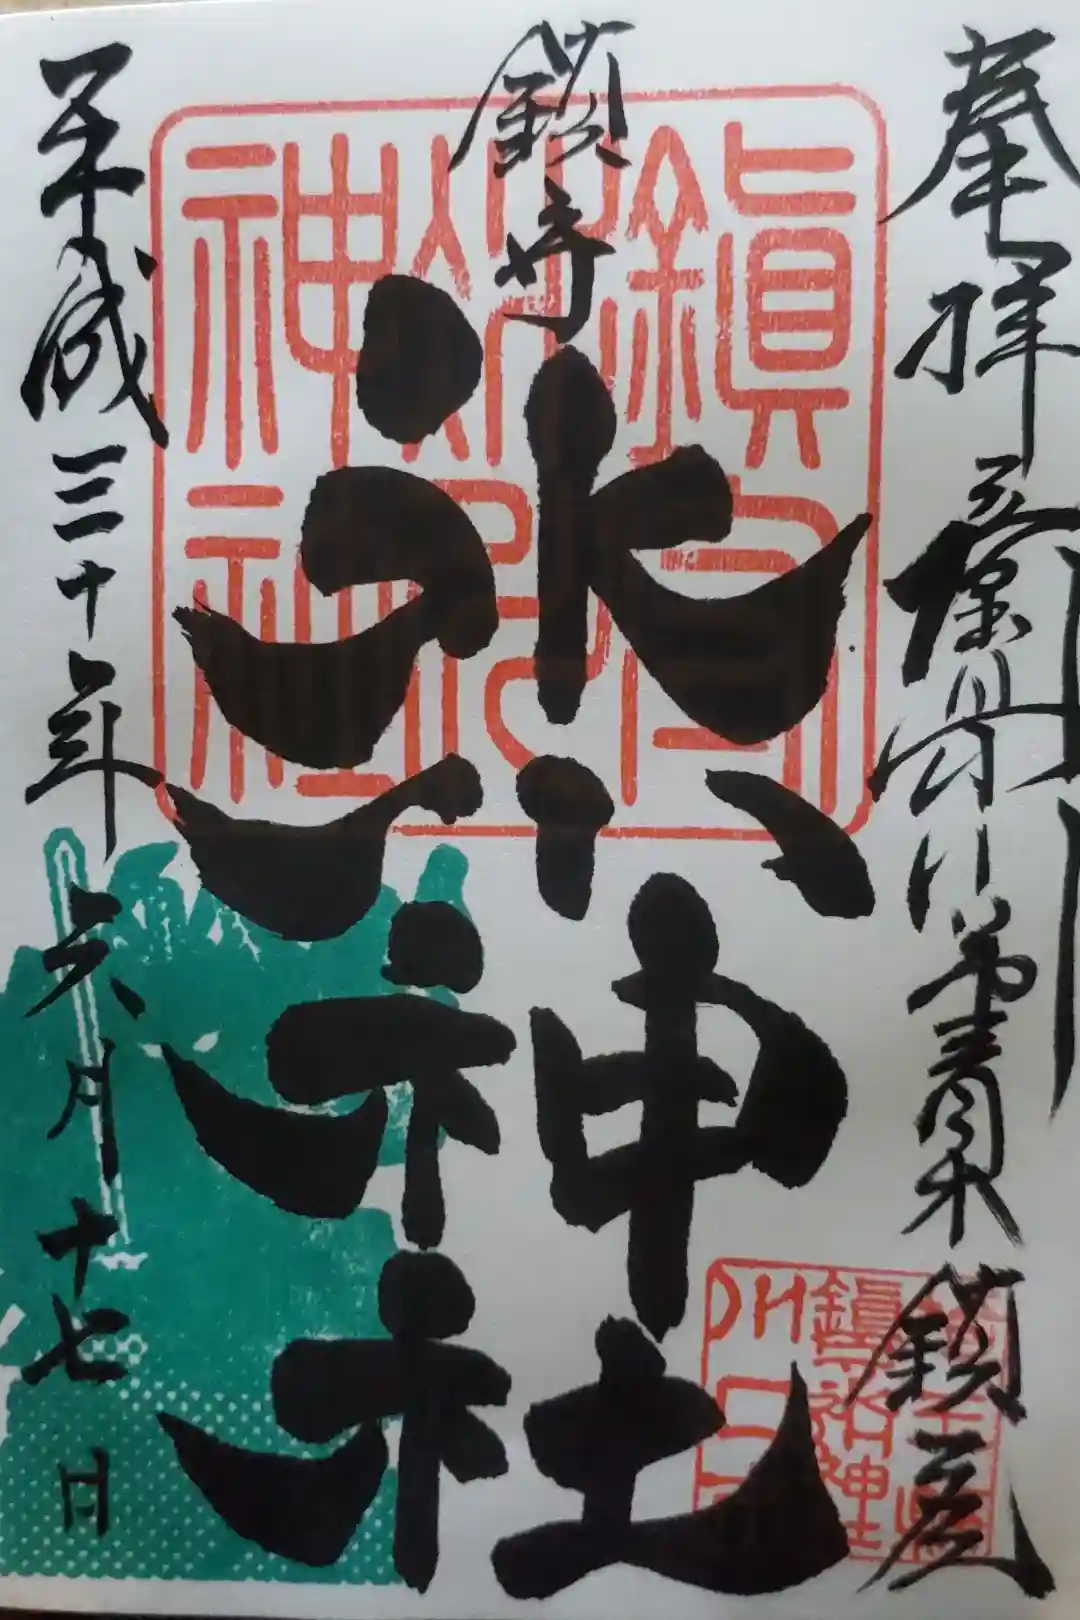 奉拝 青木 鎮座
鎮守
氷川神社
平成三十年六月十七日
鎮守
氷川
神社
鎮守氷川神社